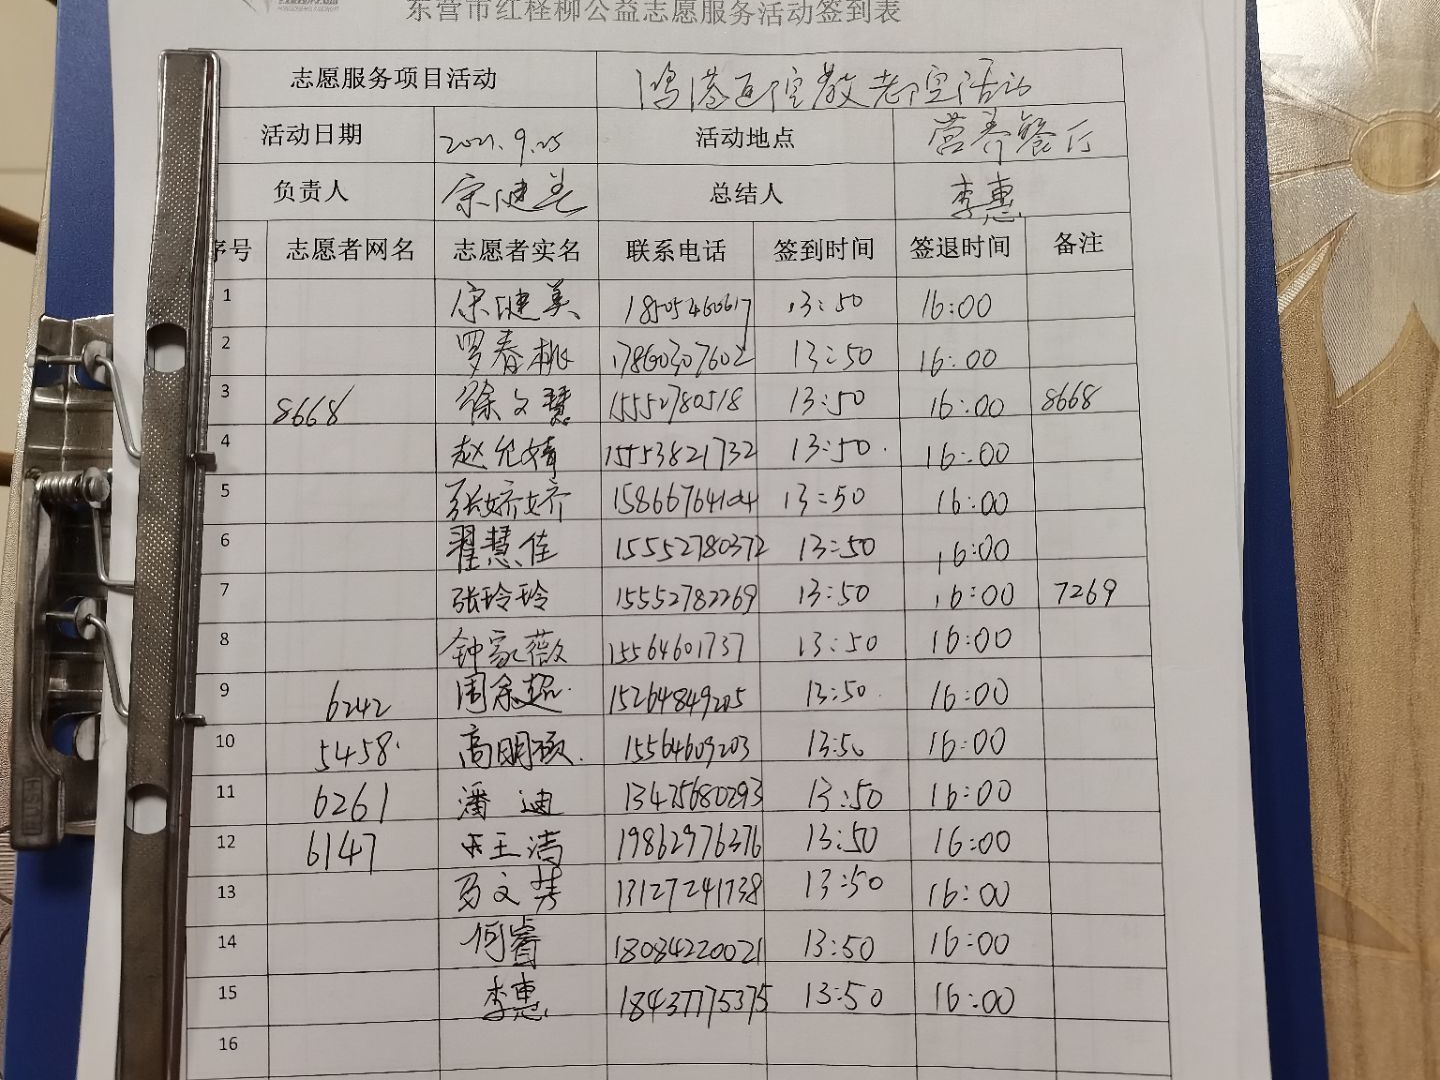 东营市红柽柳公益志愿服务活动签到表
志愿服务项目活动 鸿港医院敬老院活动
活动日期 2021.9.25 活动地点 营养餐厅
负责人 宗健美 总结人 李惠
序号 志愿者网名 志愿者实名 联系电话 签到时间 签退时间 备注
1 宗健美 18505460617 13:50 16:00
2 罗春桃 17860307602 13:50 16:00
3 8668 徐文慧 15552780518 13:50 16:00 8668
4 赵允婧 15553821732 13:50 16:00
5 张娇娇 15866764104 13:50 16:00
6 翟慧佳 15552780372 13:50 16:00
7 张玲玲 15552782269 13:50 16:00 7269
8 钟家薇 15564601737 13:50 16:00
9 6242 周余超 15264849205 13:50 16:00
10 5458 高明硕 15564609203 13:50 16:00
11 6261 潘迪 13475680293 13:50 16:00
12 6147 王洁 19862976376 13:50 16:00
13 马文梦 13127241738 13:50 16:00
14 何睿 18084220021 13:50 16:00
15 李惠 18437775375 13:50 16:00
16
PUSH